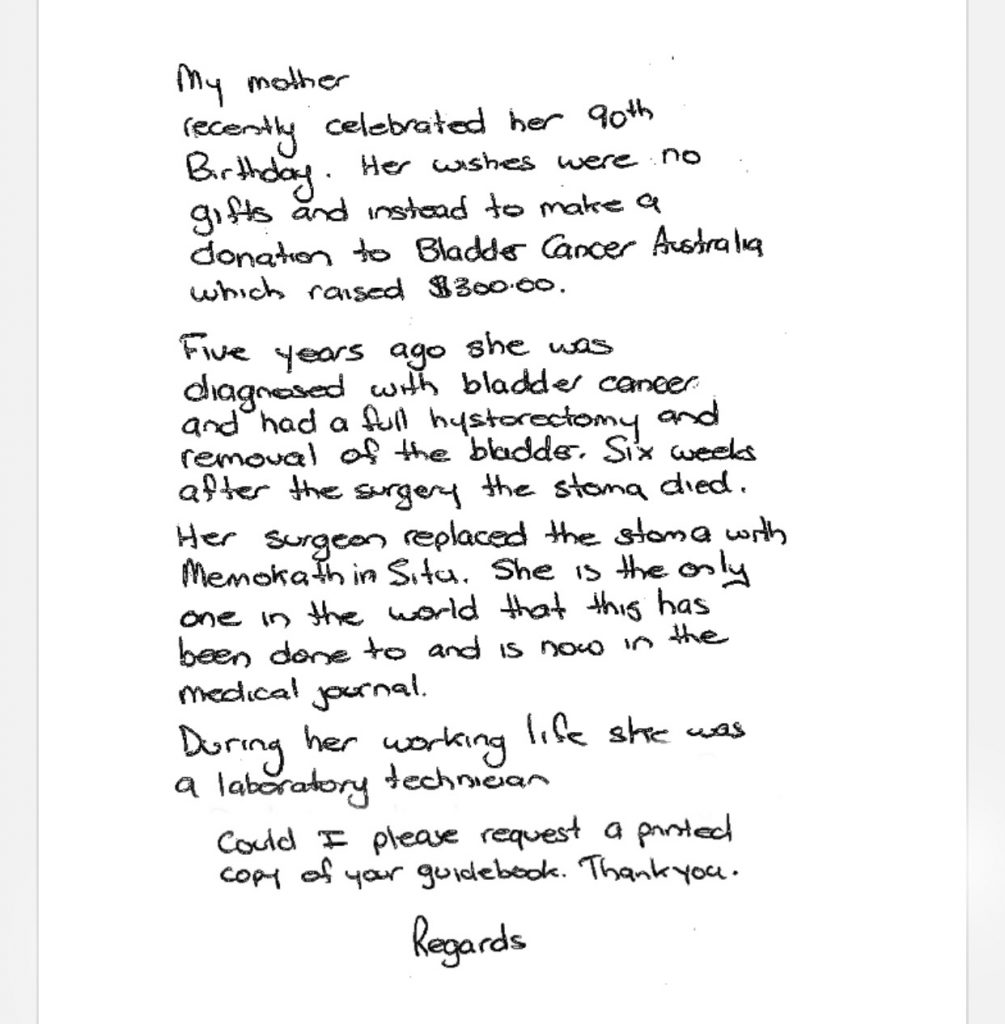 My mother
recently celebrated her 90th
Birthday. Her wishes were no
gifts and instead to make a
donation to Bladder Cancer Australia
which raised $300.00.
Five years ago she was
diagnosed with bladder cancer
and had a full hystorectomy and
removal of the bladder. Six weeks
after the surgery the stoma died.
Her surgeon replaced the stoma with
Memokath in Situ. She is the only
one in the world that this has
been done to and is now in the
medical journal.
During her working life she was
a laboratory technician
Could I please request a printed
copy of your guidebook. Thankyou.
Regards